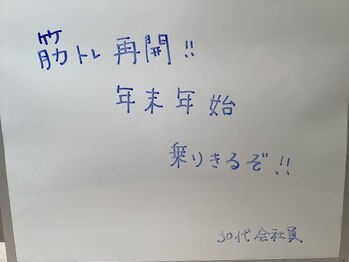 筋トレ再開!!
年末年始
乗りきるぞ!!
30代会社員